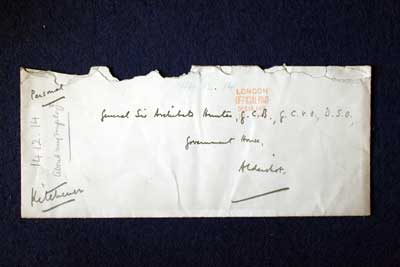 Personal
LONDON
OFFICIAL PAID
General Sir Archibald Hunter, G.C.B., G.C.V.O., D.S.O,
Government House,
Aldershot.
14.12.14
Kitchener